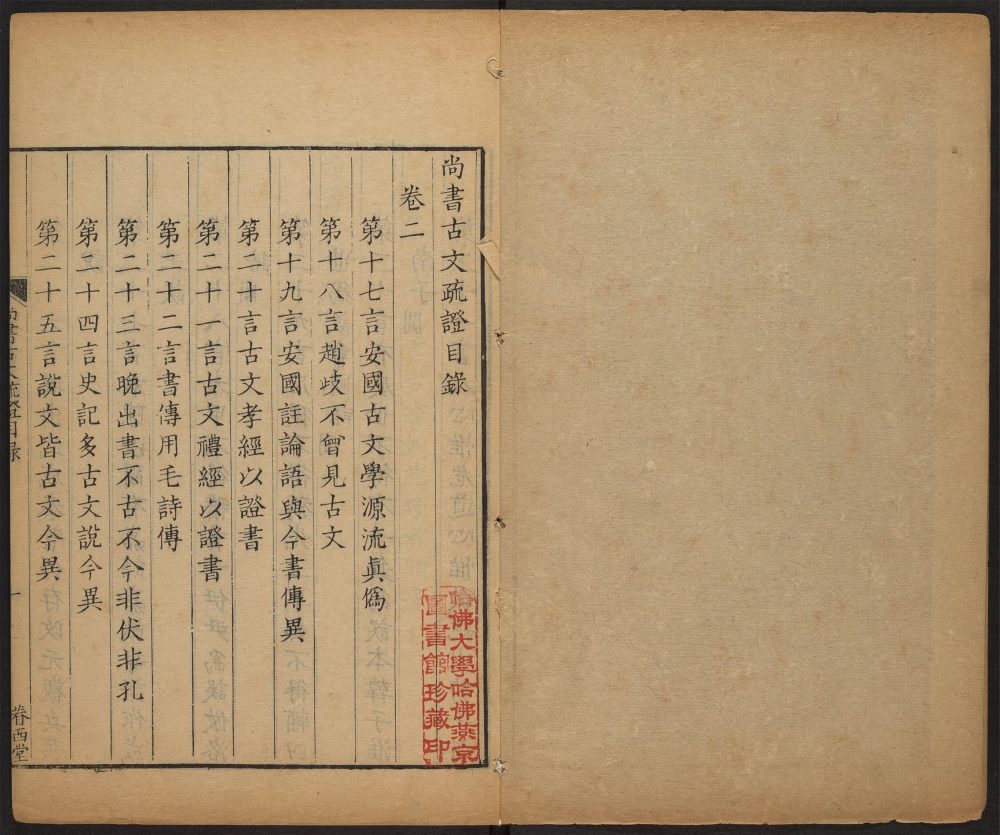 尚書古文疏證目錄
卷二
第十七言安國古文學源流眞僞
第十八言趙歧不曾見古文
第十九言安國註論語與今書傳異
第二十言古文孝經以證書
第二十一言古文禮經以證書
第二十二言書傳用毛詩傳
第二十三言晚出書不古不今非伏非孔
第二十四言史記多古文說今異
第二十五言說文皆古文今異
尚書古文疏證目錄
一
眷西堂
哈佛大學哈佛燕京
圖書館珍藏印